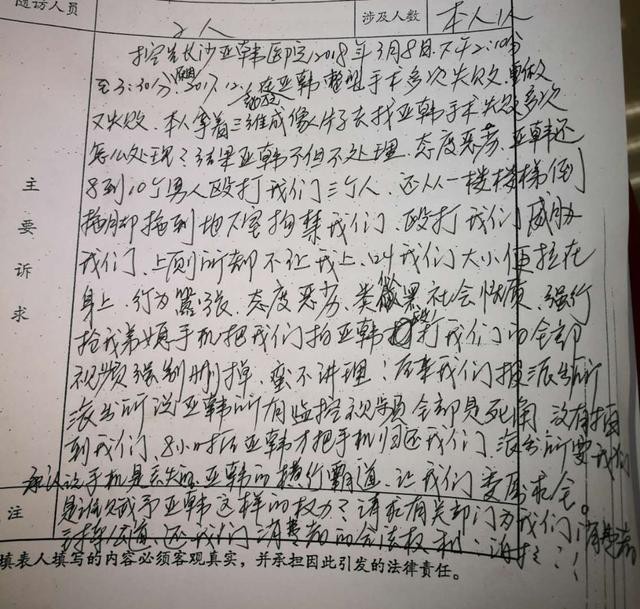 随访人员 2人 涉及人数 本人1人
控告长沙亚韩医院2018年3月8日下午2:10分
至3:30分 2017.12.6 在亚韩 整 手术多次失败
又失败. 本人拿着三维成像片子去找亚韩手术失败多次
怎么处理?结果亚韩不但不处理. 态度恶劣. 亚韩还
8到10个男人殴打我们三个人. 还从一楼楼梯倒
拖脚拖到地下室拘禁我们. 殴打我们 威胁
我们. 上厕所都不让我上. 叫我们大小便拉在
身上. 行为嚣张. 态度恶劣. 类似黑社会性质. 强行
抢我弟媳手机把我们拍亚韩 打我们的全部
视频强制删掉. 蛮不讲理; 后来我们报派出所
派出所说亚韩所有监控视频全部是死角 没有拍
到我们. 8小时后亚韩才把手机归还我们. 派出所要我们
承认说手机是丢失的. 亚韩的横行霸道. 让我们委屈求全.
是谁赋予亚韩这样的权力?请求有关部门为我们 消费者
主持公道. 还我们消费者的合法权利.
主要诉求
注
填表人填写的内容必须客观真实，并承担因此引发的法律责任。